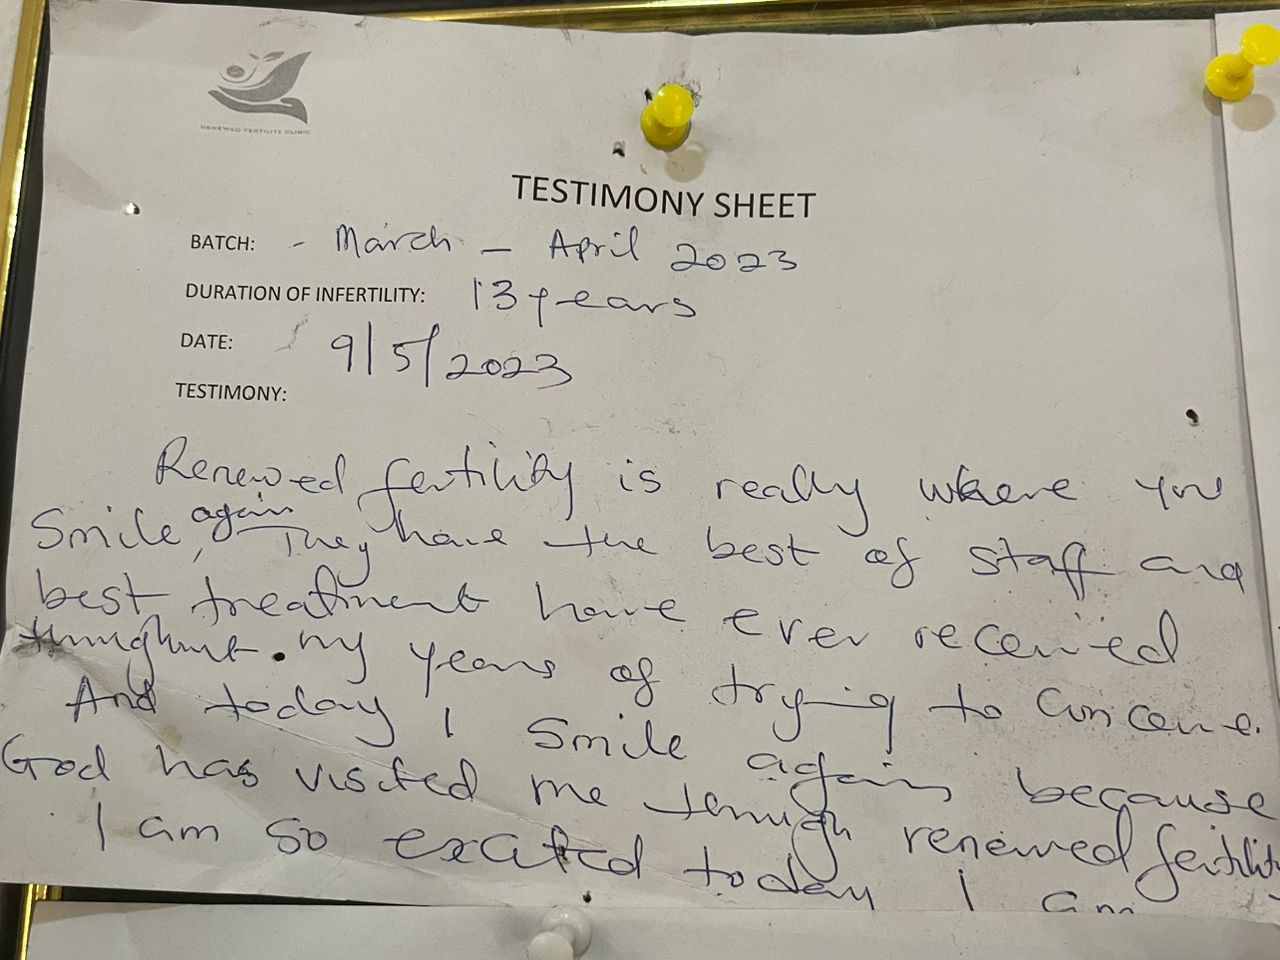 RENEWED FERTILITY CLINIC
TESTIMONY SHEET
BATCH: - March - April 2023
DURATION OF INFERTILITY: 13 years
DATE: 9/5/2023
TESTIMONY:
Renewed fertility is really where you
Smile again, They have the best of staff and
best treatment have ever received
throughout my years of trying to conceive.
And today I smile again because
God has visited me through renewed fertility
I am so excited today I am